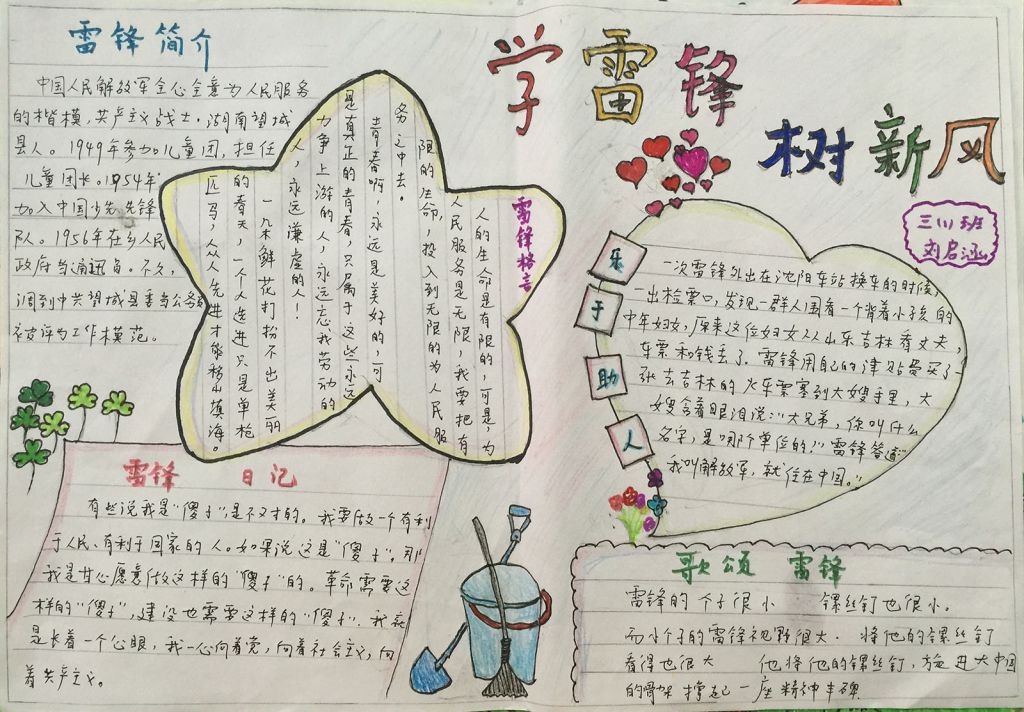 学雷锋
树新风
三(1)班
刘启涵
雷锋简介
中国人民解放军全心全意为人民服务
的楷模,共产主义战士,湖南望城
县人。1949年参加儿童团,担任
儿童团长。1954年
加入中国少先先锋
队。1956年在乡人民
政府当通迅员。不久,
调到中共望城县委当公务员
被评为工作模范。
雷锋格言
人的生命是有限的,可是,为
人民服务是无限,我要把有
限的生命,投入到无限的为人民服
务之中去。
青春啊,永远是美好的,可
是真正的青春,只属于这些永远
力争上游的人,永远忘我劳动的
人,永远谦虚的人!
一朵鲜花打扮不出美丽
的春天,一个人先进只是单枪
匹马,众人先进才能移山填海。
雷锋 日记
有些说我是"傻子",是不对的。我要做一个有利
于人民、有利于国家的人。如果说这是"傻子",那
我是甘心愿意做这样的"傻子"的。革命需要这
样的"傻子",建设也需要这样的"傻子"。我就
是长着一个心眼,我一心向着党,向着社会主义,向
着共产主义。
乐
于
助
人
一次雷锋外出在沈阳车站换车的时候,
一出检票口,发现一群人围看一个背着小孩的
中年妇女,原来这位妇女从山东去吉林看丈夫,
车票和钱丢了。雷锋用自己的津贴费买了一
张去吉林的火车票塞到大嫂手里,大
嫂含着眼泪说:"大兄弟,你叫什么
名字,是哪个单位的!"雷锋答道"
我叫解放军,就住在中国。"
歌颂 雷锋
雷锋的个子很小 螺丝钉也很小。
而小个子的雷锋视野很大. 将他的螺丝钉
看得也很大 他将他的螺丝钉,旋进大中国
的骨架 撑起一座精神丰碑